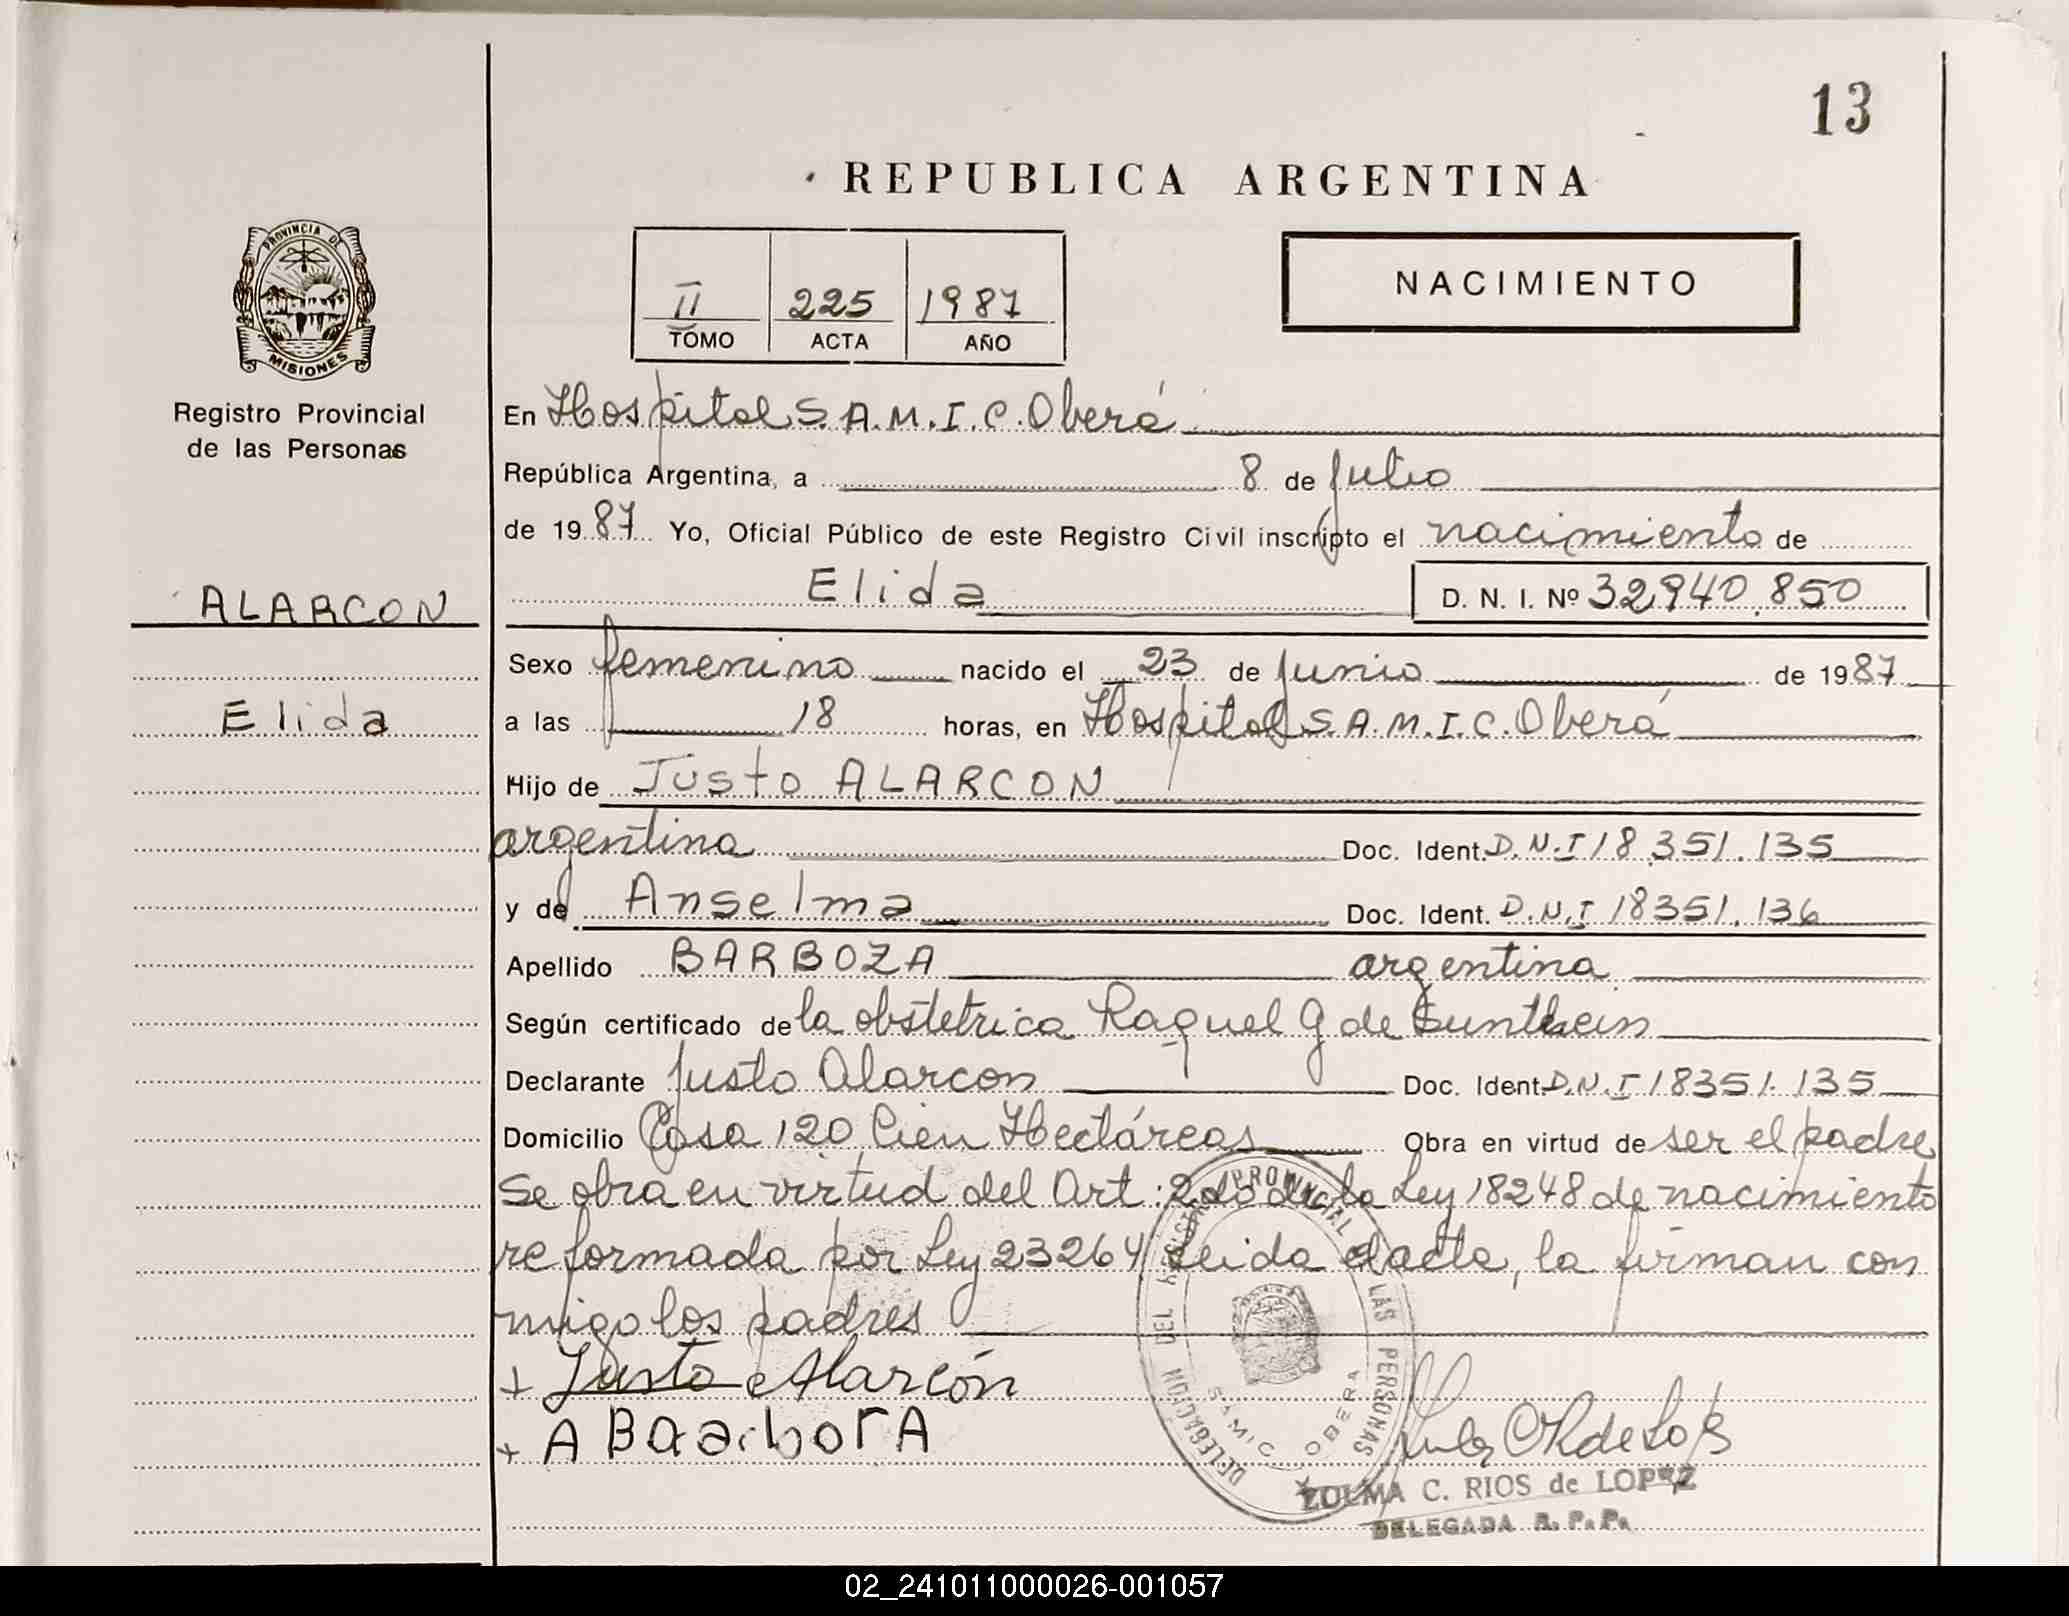 13
REPUBLICA ARGENTINA
PROVINCIA DE
MISIONES
Registro Provincial
de las Personas
II 225 1987
TOMO ACTA AÑO
NACIMIENTO
En Hospital S.A.M.I.C. Oberá
República Argentina, a 8 de Julio
de 1987 Yo, Oficial Público de este Registro Civil inscripto el nacimiento de
Elida D. N. I. Nº 32940.850
ALARCON
Elida
Sexo femenino nacido el 23 de Junio de 1987
a las 18 horas, en Hospital S.A.M.I.C. Oberá
Hijo de Justo ALARCON
argentina Doc. Ident. D.N.I 18.351.135
y de Anselma Doc. Ident. D.N.I 18351.136
Apellido BARBOZA argentina
Según certificado de la obstetrica Raquel G de
Declarante Justo Alarcon Doc. Ident. D.N.I 18351.135
Domicilio Casa 120 Cien Hectáreas Obra en virtud de ser el padre
se obra en virtud del Art: 2do de la Ley 18248 de nacimiento
reformada por Ley 23264 leida el acta, la firman con
migo los padres
+ Justo Alarcón
+ A
DELEGACION DEL REGISTRO PROVINCIAL LAS PERSONAS
SAMIC OBERA
ZULMA C. RIOS de LOPEZ
DELEGADA R. P. P.
02_241011000026-001057